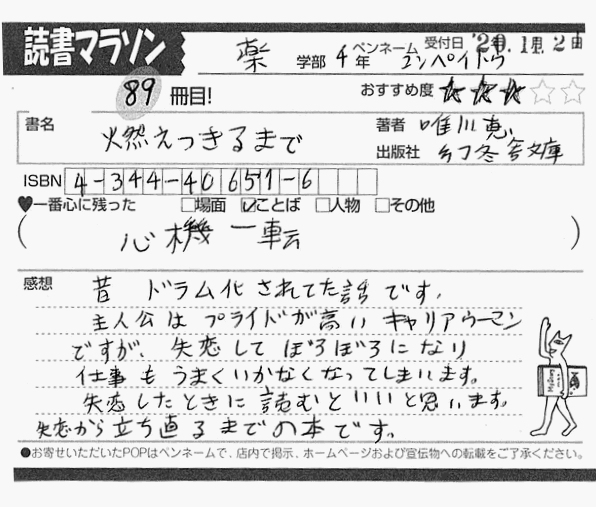 読書マラソン
薬 学部 4年 ペンネーム コンペイトウ 受付日
89 冊目! おすすめ度 ★★★☆☆
書名 燃えつきるまで 著者 唯川恵
出版社 幻冬舎文庫
ISBN 4-344-40651-6
♥一番心に残った □場面 ☑ことば □人物 □その他
(心機一転)
感想 昔 ドラム化されてた話です。
主人公は プライドが高い キャリアウーマン
ですが、失恋して ぼろぼろになり
仕事も うまくいかなくなってしまいます。
失恋したときに 読むといいと思います。
失恋から立ち直るまでの本です。
●お寄せいただいたPOPはペンネームで、店内で掲示、ホームページおよび宣伝物への転載をご了承ください。